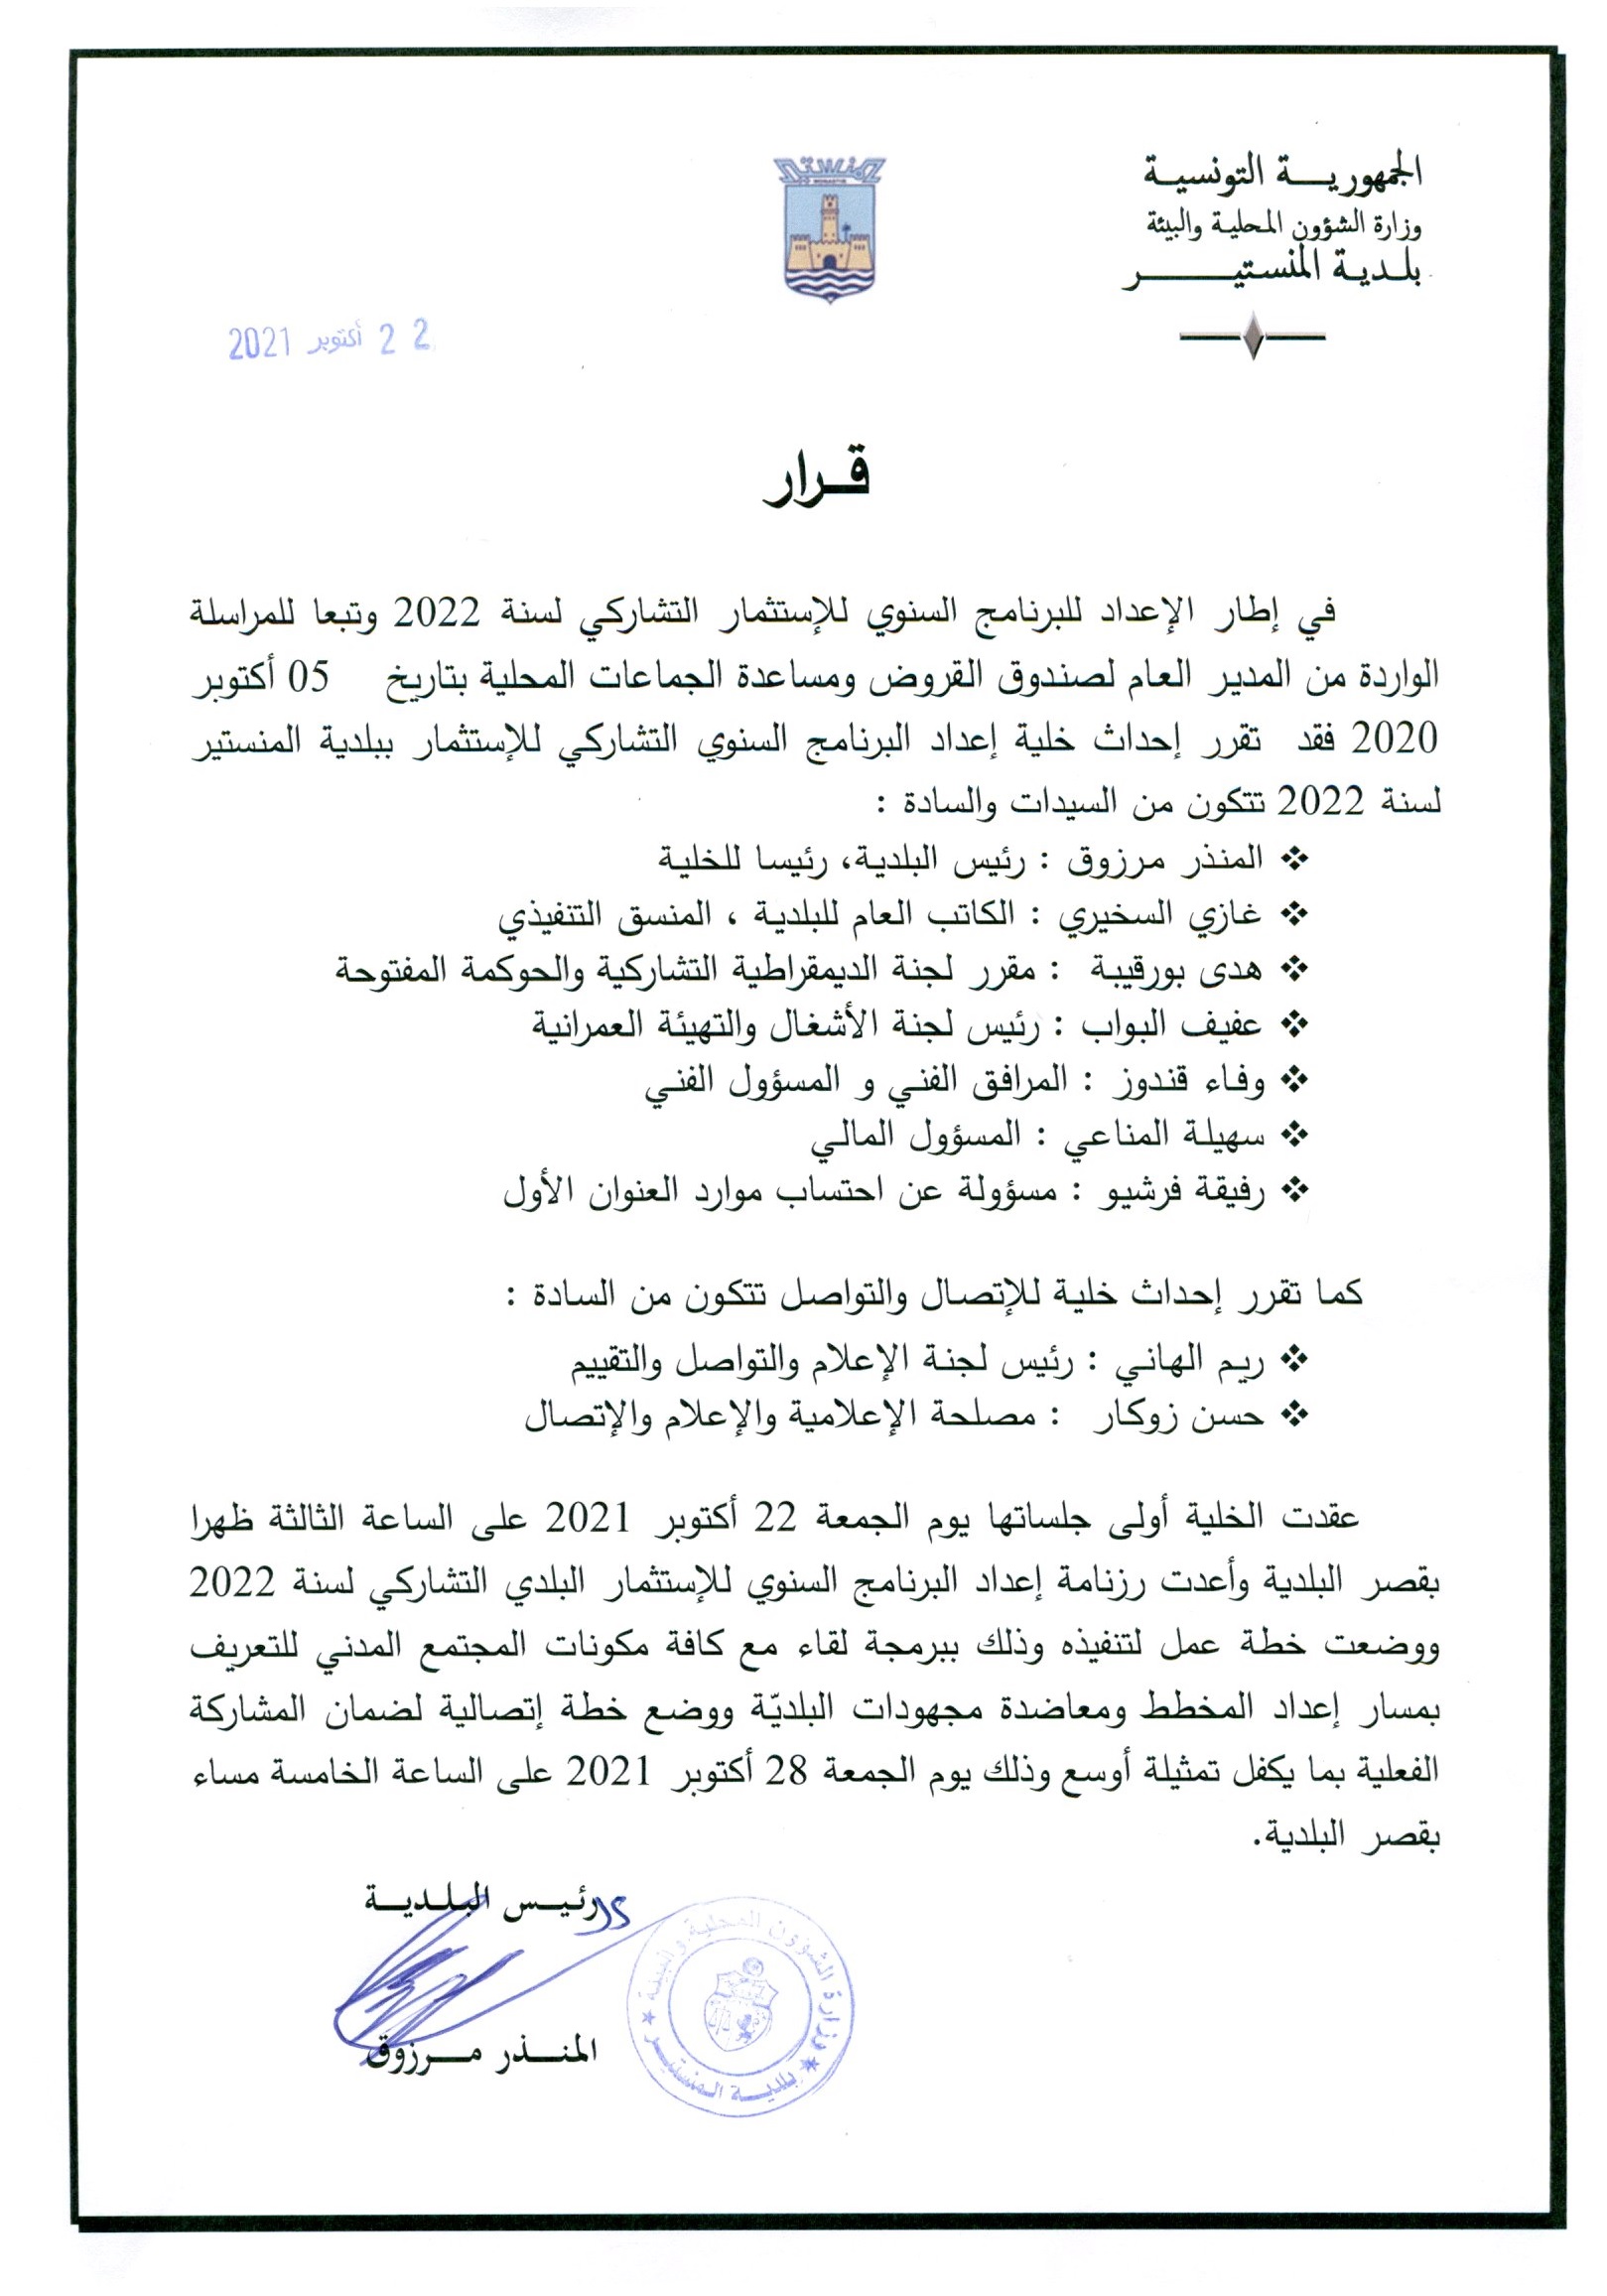 الجمهورية التونسية
وزارة الشؤون المحلية والبيئة
بلدية المنستير
منستير
MONASTIR
22 أكتوبر 2021
قرار
في إطار الإعداد للبرنامج السنوي للإستثمار التشاركي لسنة 2022 وتبعا للمراسلة
الواردة من المدير العام لصندوق القروض ومساعدة الجماعات المحلية بتاريخ 05 أكتوبر
2020 فقد تقرر إحداث خلية إعداد البرنامج السنوي التشاركي للإستثمار ببلدية المنستير
لسنة 2022 تتكون من السيدات والسادة :
❖ المنذر مرزوق : رئيس البلدية، رئيسا للخلية
❖ غازي السخيري : الكاتب العام للبلدية ، المنسق التنفيذي
❖ هدى بورقيبة : مقرر لجنة الديمقراطية التشاركية والحوكمة المفتوحة
❖ عفيف البواب : رئيس لجنة الأشغال والتهيئة العمرانية
❖ وفاء قندوز : المرافق الفني و المسؤول الفني
❖ سهيلة المناعي : المسؤول المالي
❖ رفيقة فرشيو : مسؤولة عن احتساب موارد العنوان الأول
كما تقرر إحداث خلية للإتصال والتواصل تتكون من السادة :
❖ ريم الهاني : رئيس لجنة الإعلام والتواصل والتقييم
❖ حسن زوكار : مصلحة الإعلامية والإعلام والإتصال
عقدت الخلية أولى جلساتها يوم الجمعة 22 أكتوبر 2021 على الساعة الثالثة ظهرا
بقصر البلدية وأعدت رزنامة إعداد البرنامج السنوي للإستثمار البلدي التشاركي لسنة 2022
ووضعت خطة عمل لتنفيذه وذلك ببرمجة لقاء مع كافة مكونات المجتمع المدني للتعريف
بمسار إعداد المخطط ومعاضدة مجهودات البلديّة ووضع خطة إتصالية لضمان المشاركة
الفعلية بما يكفل تمثيلة أوسع وذلك يوم الجمعة 28 أكتوبر 2021 على الساعة الخامسة مساء
بقصر البلدية.
رئيس البلدية
المنذر مرزوق
وزارة الشؤون المحلية والبيئة
بلدية المنستير